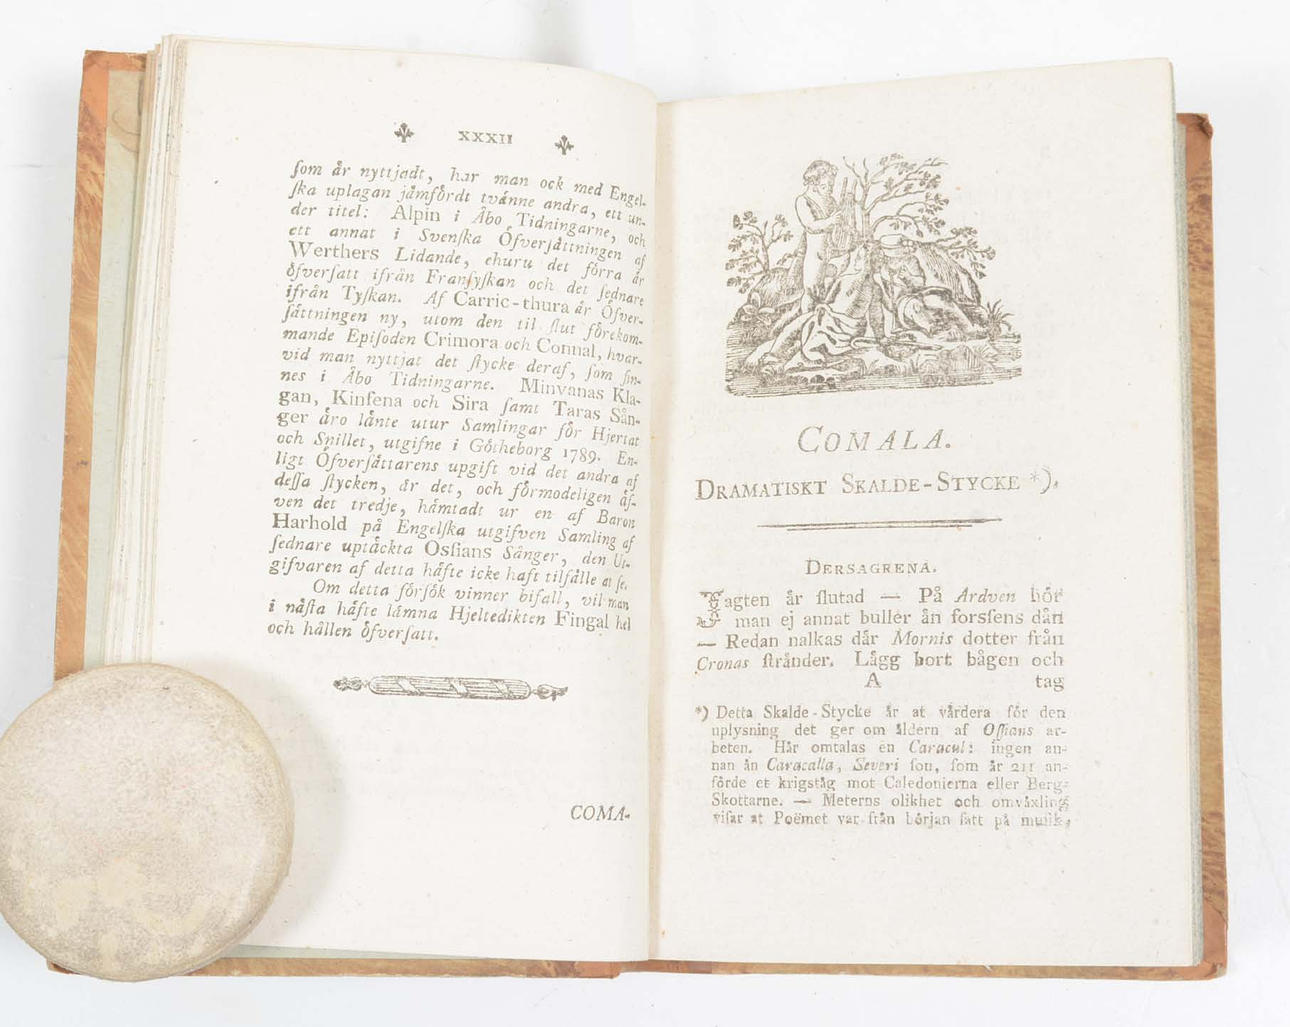 XXXII
ſom år nyttjadt, har man ock med Engel-
ſka uplagan jåmfördt tvånne andra, ett un-
der titel: Alpin i Åbo Tidningarne, och
ett annat i Svenſka Öfverſåttningen af
Werthers Lidande, ehuru det förra år
öfverſatt ifrån Franſyſkan och det ſednare
ifrån Tyſkan. Af Carric-thura år Öfver-
ſåttningen ny, utom den til ſlut förekom-
mande Epiſoden Crimora och Connal, hvar-
vid man nyttjat det ſtycke deraf, ſom fin-
nes i Åbo Tidningarne. Minvanas Kla-
gan, Kinfena och Sira ſamt Taras Sån-
ger åro lånte utur Samlingar för Hjertat
och Snillet, utgifne i Götheborg 1789. En-
ligt Öfverſåttarens upgift vid det andra af
deſſa ſtycken, år det, och förmodeligen åf-
ven det tredje, håmtadt ur en af Baron
Harhold på Engelſka utgifven Samling af
ſednare uptåckta Oſſians Sånger, den Ut-
gifvaren af detta håfte icke haft tilfålle at ſe.
Om detta förſök vinner bifall, vil man
i nåſta håfte låmna Hjeltedikten Fingal hel
och hållen öfverſatt.
COMA-
COMALA.
DRAMATISKT SKALDE-STYCKE *).
DERSAGRENA.
Jagten år ſlutad — På Ardven hör
man ej annat buller ån forsſens dån
— Redan nalkas dår Mornis dotter från
Cronas ſtrånder. Lågg bort bågen och
A tag
*) Detta Skalde-Stycke år at vårdera för den
uplysning det ger om åldern af Oſſians ar-
beten. Hår omtalas en Caracul: ingen an-
nan ån Caracalla, Severi ſon, ſom år 211 an-
förde et krigståg mot Caledonierna eller Berg-
Skottarne. — Meterns olikhet och omvåxling
viſar at Poëmet var från början ſatt på muſik,